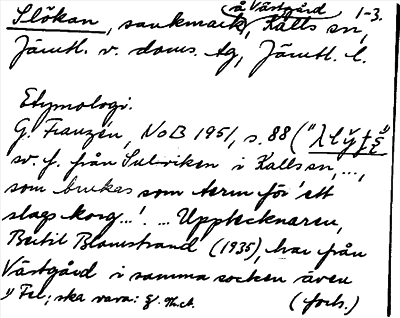 1-3.
å Västgård
Slökan, sankmark, Kalls sn,
Jämtl. v. doms. tg, Jämtl. l.
Etymologi.
G. Franzén, NoB 1951, s. 88 ("
sv. f. från Sulviken i Kalls sn, ...,
som brukas som term för 'ett
slags korg...' ... Upptecknaren,
Bertil Blomstrand (1935), har från
Västgård i samma socken även
1) Fel; ska vara: (forts.)